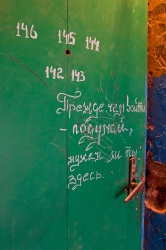 146 145 144
142 143
Прежде, чем войти
- подумай,
нужен ли ты
здесь.